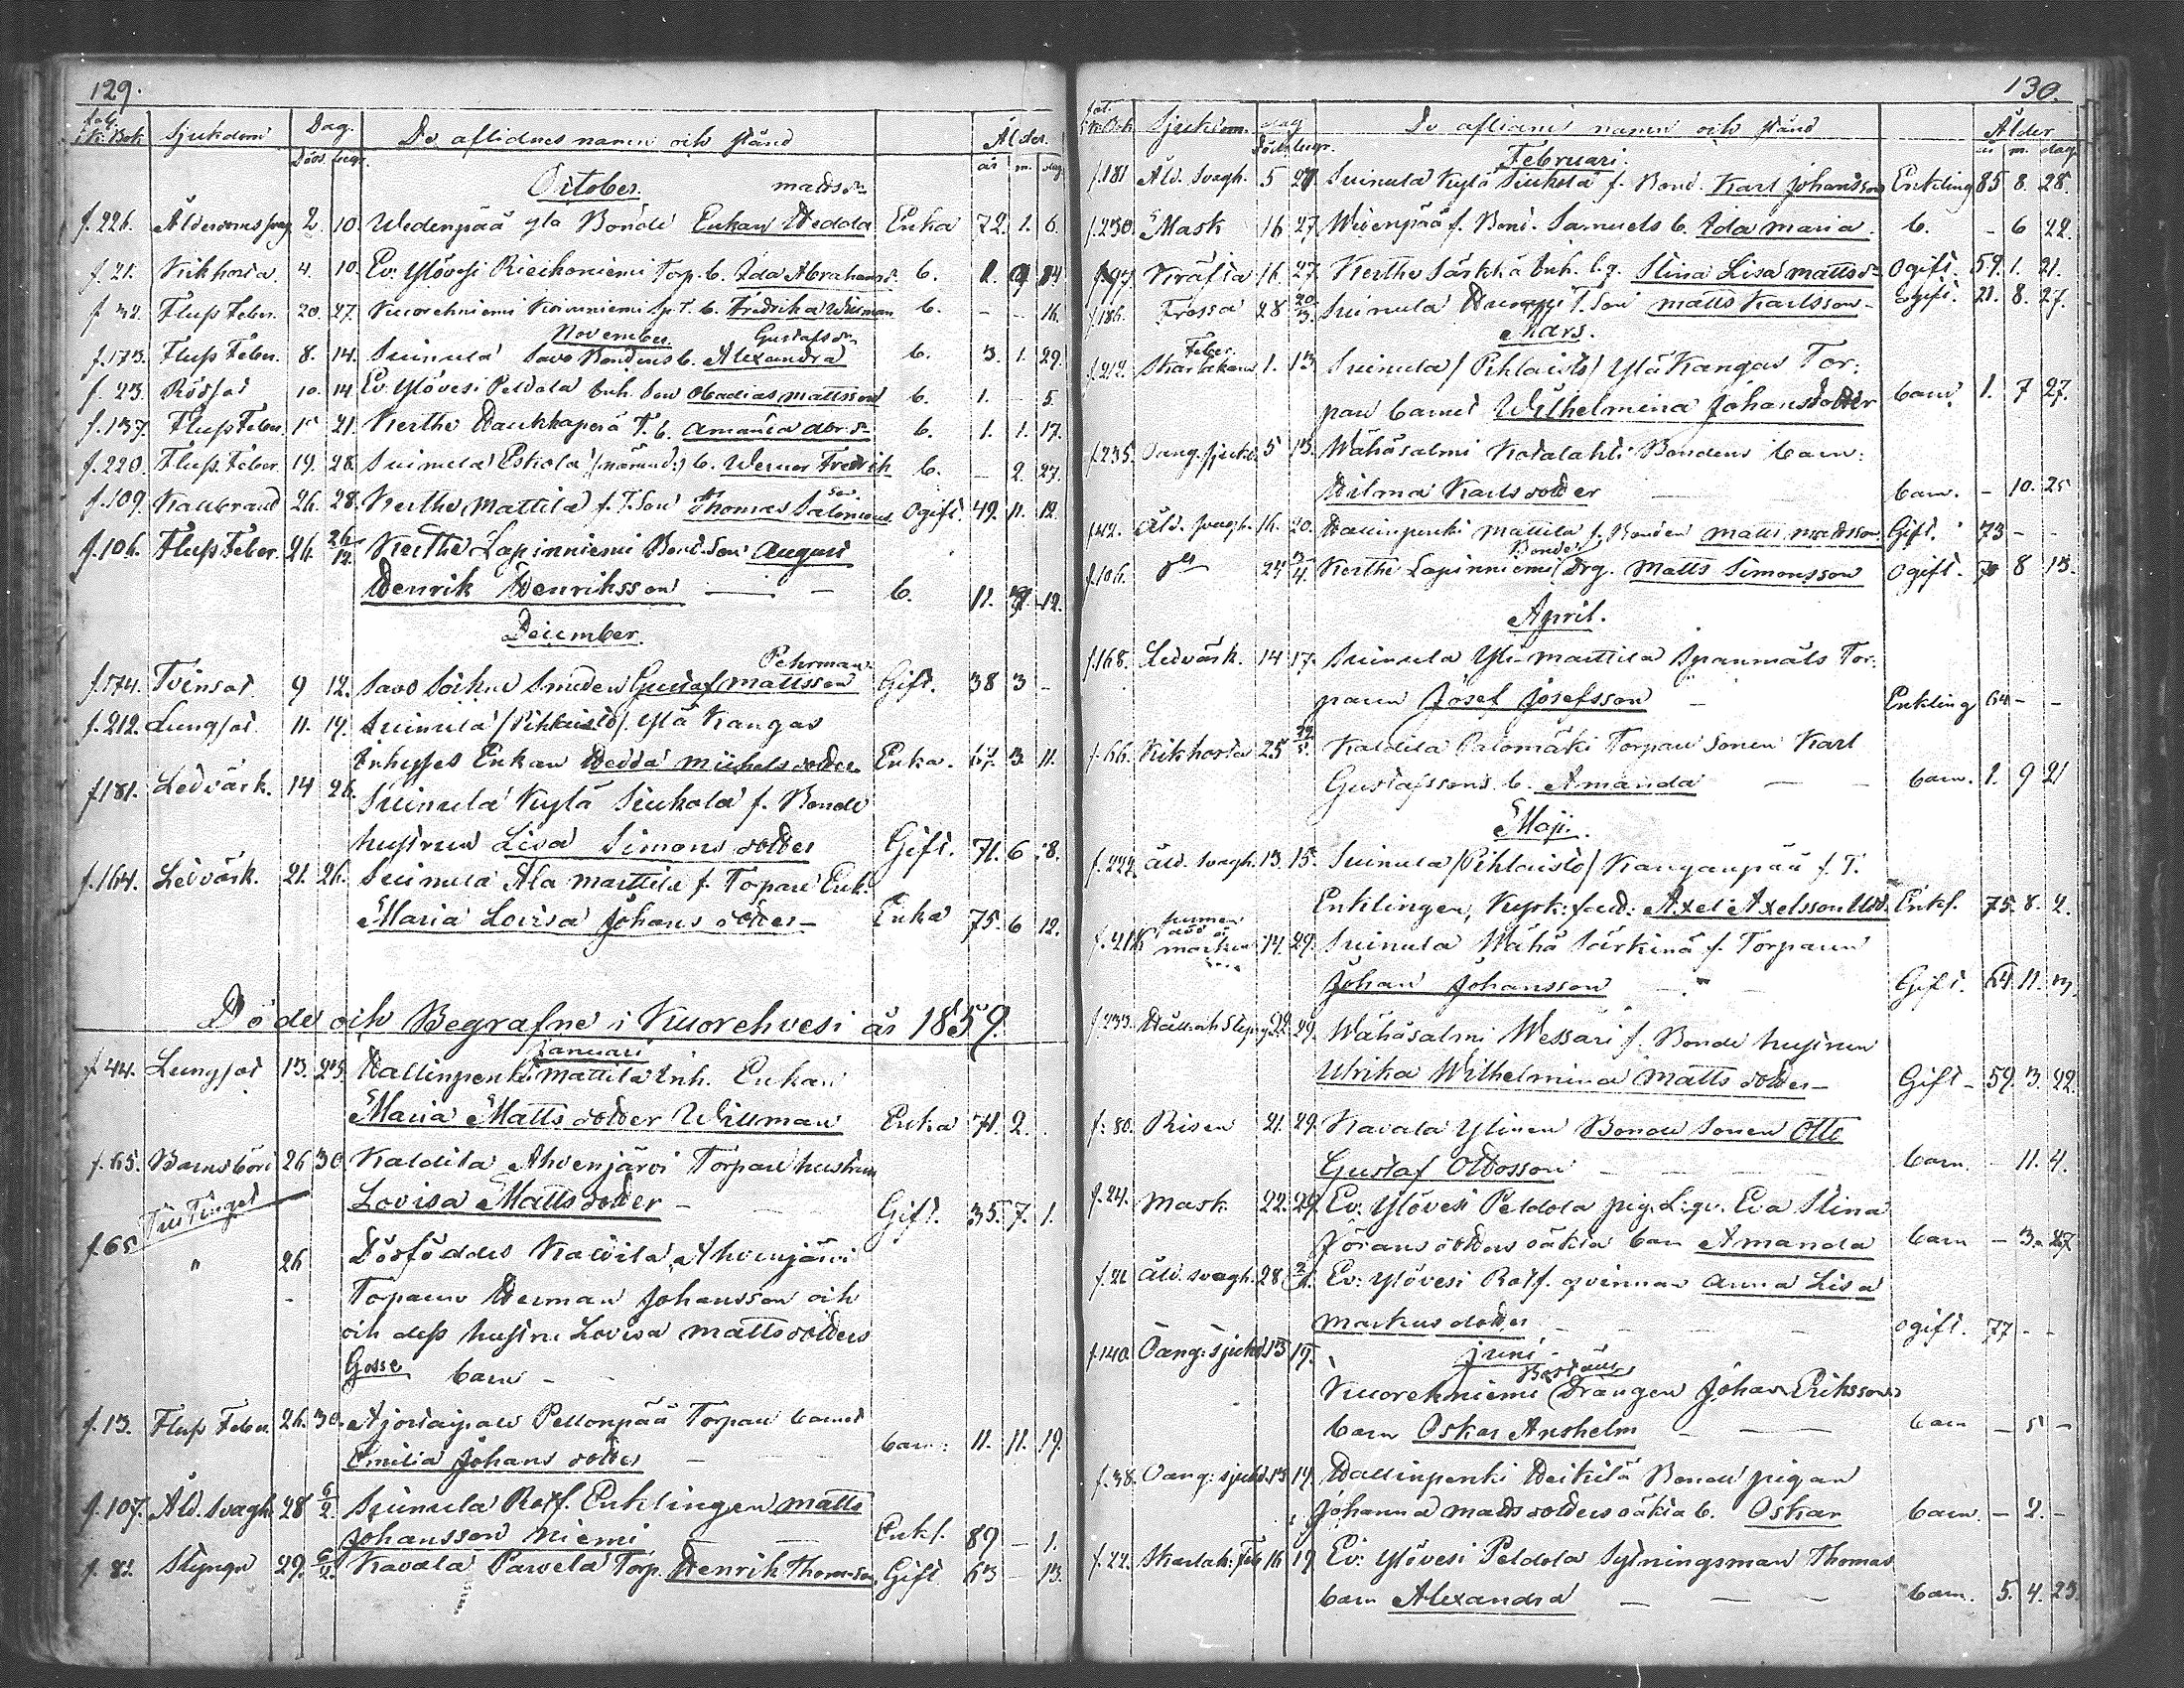 129.
fol. i K. Bok Sjukdom Dag. De aflidnes namn och stånd Ålder.
Död begr. år m. dag
October. Mattsdr
f. 226. Ålderdomssvag 2. 10. Wedenpää gla Bonde Enkan Hedda Enka 72. 1. 6.
f. 21. Kikhosta 4. 10. Ev: Ylövesi Riechoniemi Torp. b. Ida Abrahamsdr b. 1. 9 14
f. 32. Fluss Feber. 20. 27. Kuorehniemi Koivuniemi b. Fredrika Willman b. - - 16.
November Gustafsdr
f. 173. Fluss Feber. 8. 14. Suinula Savo Bondens b. Alexandra b. 3. 1. 29.
f. 23. Rödsot 10. 14. Ev: Ylövesi Peldola Inh. Son Obadias Mattsson b. 1. - 5.
f. 137. Fluss Feber. 15 21. Kerthe Haukkaperä T. b. Amanda Abr.dr b. 1. 1. 17.
f. 220. Fluss. Feber. 19. 28. Suinula Eskola b. Werner Fredrik b. - 2. 27.
f. 109. Kallbrand 26. 28. Kerthe Mattila f. T. Son Thomas Salomons son Ogift. 49. 11. 12.
f. 106. Fluss Feber. 26. 26/12. Kerthe Lapinniemi Bond. Son August
Henrik Henriksson — b. 11. 12.
December.
Pehrman
f. 174. Tvinsot 9 12. Savo Soihu Smeden Gustaf Mattsson Gift. 38 3 -
f. 212. Lungsot. 11. 19. Suinula /Pihlaisto/ Ylä Kangas
Inhyses Enkan Hedda Michelsdotter Enka. 67. 3. 11.
f. 181. Ledvärk. 14 26. Suinula Kylä Siukola f. Bonde
hustrun Lisa Simonsdotter Gift. 71. 6 8.
f. 164. Ledvärk. 21. 26. Suinula Ala Marttila f. Torpare Enk.
Maria Lovisa Johansdotter — Enka 75. 6 12.
Döde och Begrafne i Kuorehvesi år 1859.
Januari
f. 44. Lungsot 13. 23. Hallinpenki Mattila Inh. Enkan
Maria Mattsdotter Willman Enka 71. 2.
f. 65. Barnsbörd 26 30 Kaldila Ahvenjärvi Torpare hustrun
Lovisa Mattsdotter — Gift. 35. 7. 1.
Till Tinget
f. 65 " 26 Dödföddes Kaldila, Ahvenjärvi
Torparen Herman Johansson och
och dess hustru Lovisa Mattsdotters
Gosse barn -
f. 13. Fluss Feber. 26. 30. Ajostaipale Pellonpää Torpare barnet
Emilia Johansdotter — barn: 11. 11. 19.
f. 107. Åld. svagh. 28 6/2. Suinula Rotf. Enklingen Matts
Johansson Niemi Enkl. 89 - 1.
f. 82. Styngn 29. 6/2. Kavala Parvela Torp. Henrik Thomasson Gift 63 - 13.
130.
fol. i K. Bok Sjukdom. dag De aflidnes namn och stånd Ålder
Död begr. år m. dag
Februari.
f. 181 Åld. svagh. 5 27 Suinula Kylä Siukola f. Bond. Karl Johansson Enkling 85 8. 28.
f. 230. Mask 16 27 Wedenpää f. Bond. Samuels b. Ida Maria. b. - 6 22.
f. 97 Kräfta 16. 27. Kerthe Särkkä Inh. l.q. Stina Lisa Mattsdr Ogift. 59. 1. 21.
f. 186. Frossa 28 20/3. Suinula T. Son Matts Karlsson - Ogift. 21. 8. 27.
Mars.
f. 212. Skarlakans Feber 1. 13 Suinula /Pihlaisto/ Ylä Kangas Tor:
pare barnet Wilhelmina Johansdotter barn 1. 7 27.
f. 235. Oang. sjukd. 5 13. Wähäsalmi Kotalahti Bondens barn:
Hilma Karlsdotter — barn. - 10. 25
f. 42. Åld. svagh. 16. 20. Hallinpenki Mattila f. Bonden Matts Mattsson. Gift. 73 - -
f. 106. 24 3/4. Kerthe Lapinniemi Bonde Drg. Matts Simonsson Ogift. 8 13.
April.
f. 168. Ledvärk. 14 17. Suinula Yli-Marttila Spanmåls Tor.
paren Josef Josefsson - Enkling 64 - -
f. 66. Kikhosta 25 Kaldila Palomäki Torpare Sonen Karl
Gustafssons b. Amanda — barn. 1. 9 21
Maji.
f. 222 Åld. svagh. 13. 15. Suinula /Pihlaisto/ Kanganpää f. T.
Enklingen, Kyrk: Axel Axelsson Enkl. 75. 8. 2.
f. 14. 29. Suinula Wähä Särkinä f. Torparen
Johan Johansson - Gift. 64 11. 3.
f. 233. Håll och Styng 22. 29. Wähäsalmi Wessari f. Bonde hustrun
Ulrika Wilhelmina Mattsdotter — Gift - 59. 3. 22.
f. 80. Risen 21. 29. Kavala Ylinen Bonde Sonen Otto
Gustaf Ottosson — barn - 11. 4.
f. 24. Mask 22. 29. Ev: Ylövesi Peldola pig. L.qv. Eva Stina
Jöransdotters oäkta barn Amanda barn - 3. 27
f. 21 Åld. svagh. 28 2/6. Ev: Ylövesi Rotf. qvinnan Anna Lisa
Markusdotter — ogift. 77 - -
Juni -
f. 140. Oang: sjukd. 13 19. Kuorehniemi Drängen Johan Eriksson
barn Oskar Anshelm — barn - 5 -
f. 38. Oang: sjukd. 13 19. Hallinpenki Heikilä Bonde pigan
Johanna Mattsdotters oäkta b. Oskar barn. - 2. -
f. 22. Skarlak: Feb 16 19. Ev: Ylövesi Peldola Sytningsman Thomas
barn Alexandra — barn. 5. 4. 23.